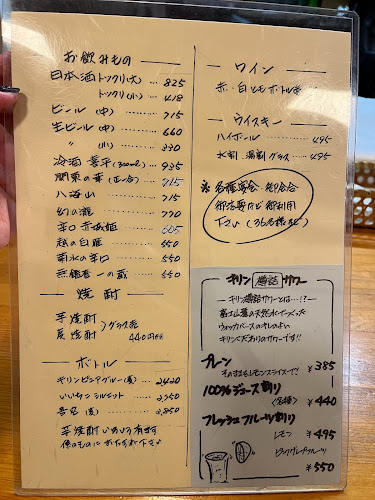 お飲みもの
日本酒 トックリ(大) … 825
トックリ(小) … 418
ビール (中) … 715
生ビール (中) … 660
〃 (小) … 330
冷酒 喜平 (300ml) … 935
関東の華 (正一合) … 715
八海山 … 715
幻の瀧 … 770
辛口 … 605
… 550
菊水の辛口 … 550
無鑑査 一の蔵 … 550
焼酎
芋焼酎
麦焼酎 〉グラス売 440円
ボトル
キリンピュアブルー(麦) … 2,420
いいちこシルエット … 2,750
吉四六(麦) … 2,850
芋焼酎いろいろ有ます
係のものにおたずね下さい
ワイン
赤・白ともボトル
ウイスキー
ハイボール … 495
水割・湯割 グラス … 495
※ 各種宴会・
御法事など御利用
下さい (36名様迄)
キリン 酒話 サワー
キリン酒話サワーとは…!?
富士山麓の天然水でつくった
ウォッカベースのキレのよい
キリンこだわりのサワーです!!
プレーン
そのまま&レモンスライスで!! ¥385
100%ジュース割り
〈各種〉 ¥440
フレッシュフルーツ割り
レモン ¥495
ピンクグレープフルーツ
¥550